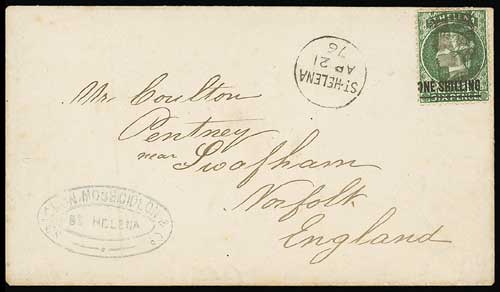 ST HELENA
ONE SHILLING
SIX PENCE
ST HELENA
AP 21
76
Mr. Coulton
Pentney
near Swafham
Norfolk
England
ST HELENA